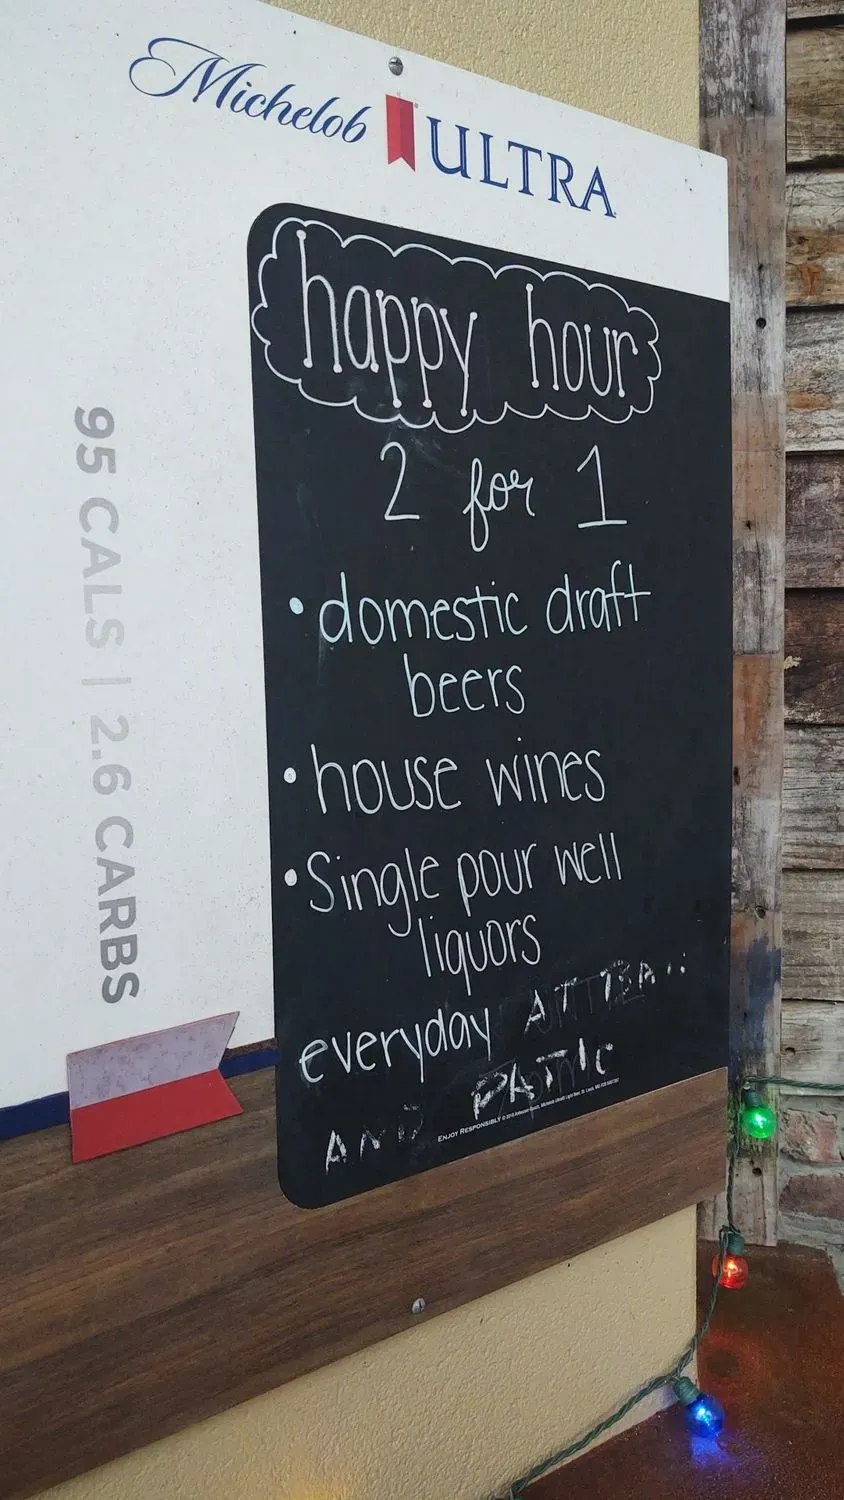 Michelob ULTRA
happy hour
2 for 1
• domestic draft
beers
• house wines
• Single pour well
liquors
everyday AT
AND PATIO
ENJOY RESPONSIBLY
95 CALS | 2.6 CARBS